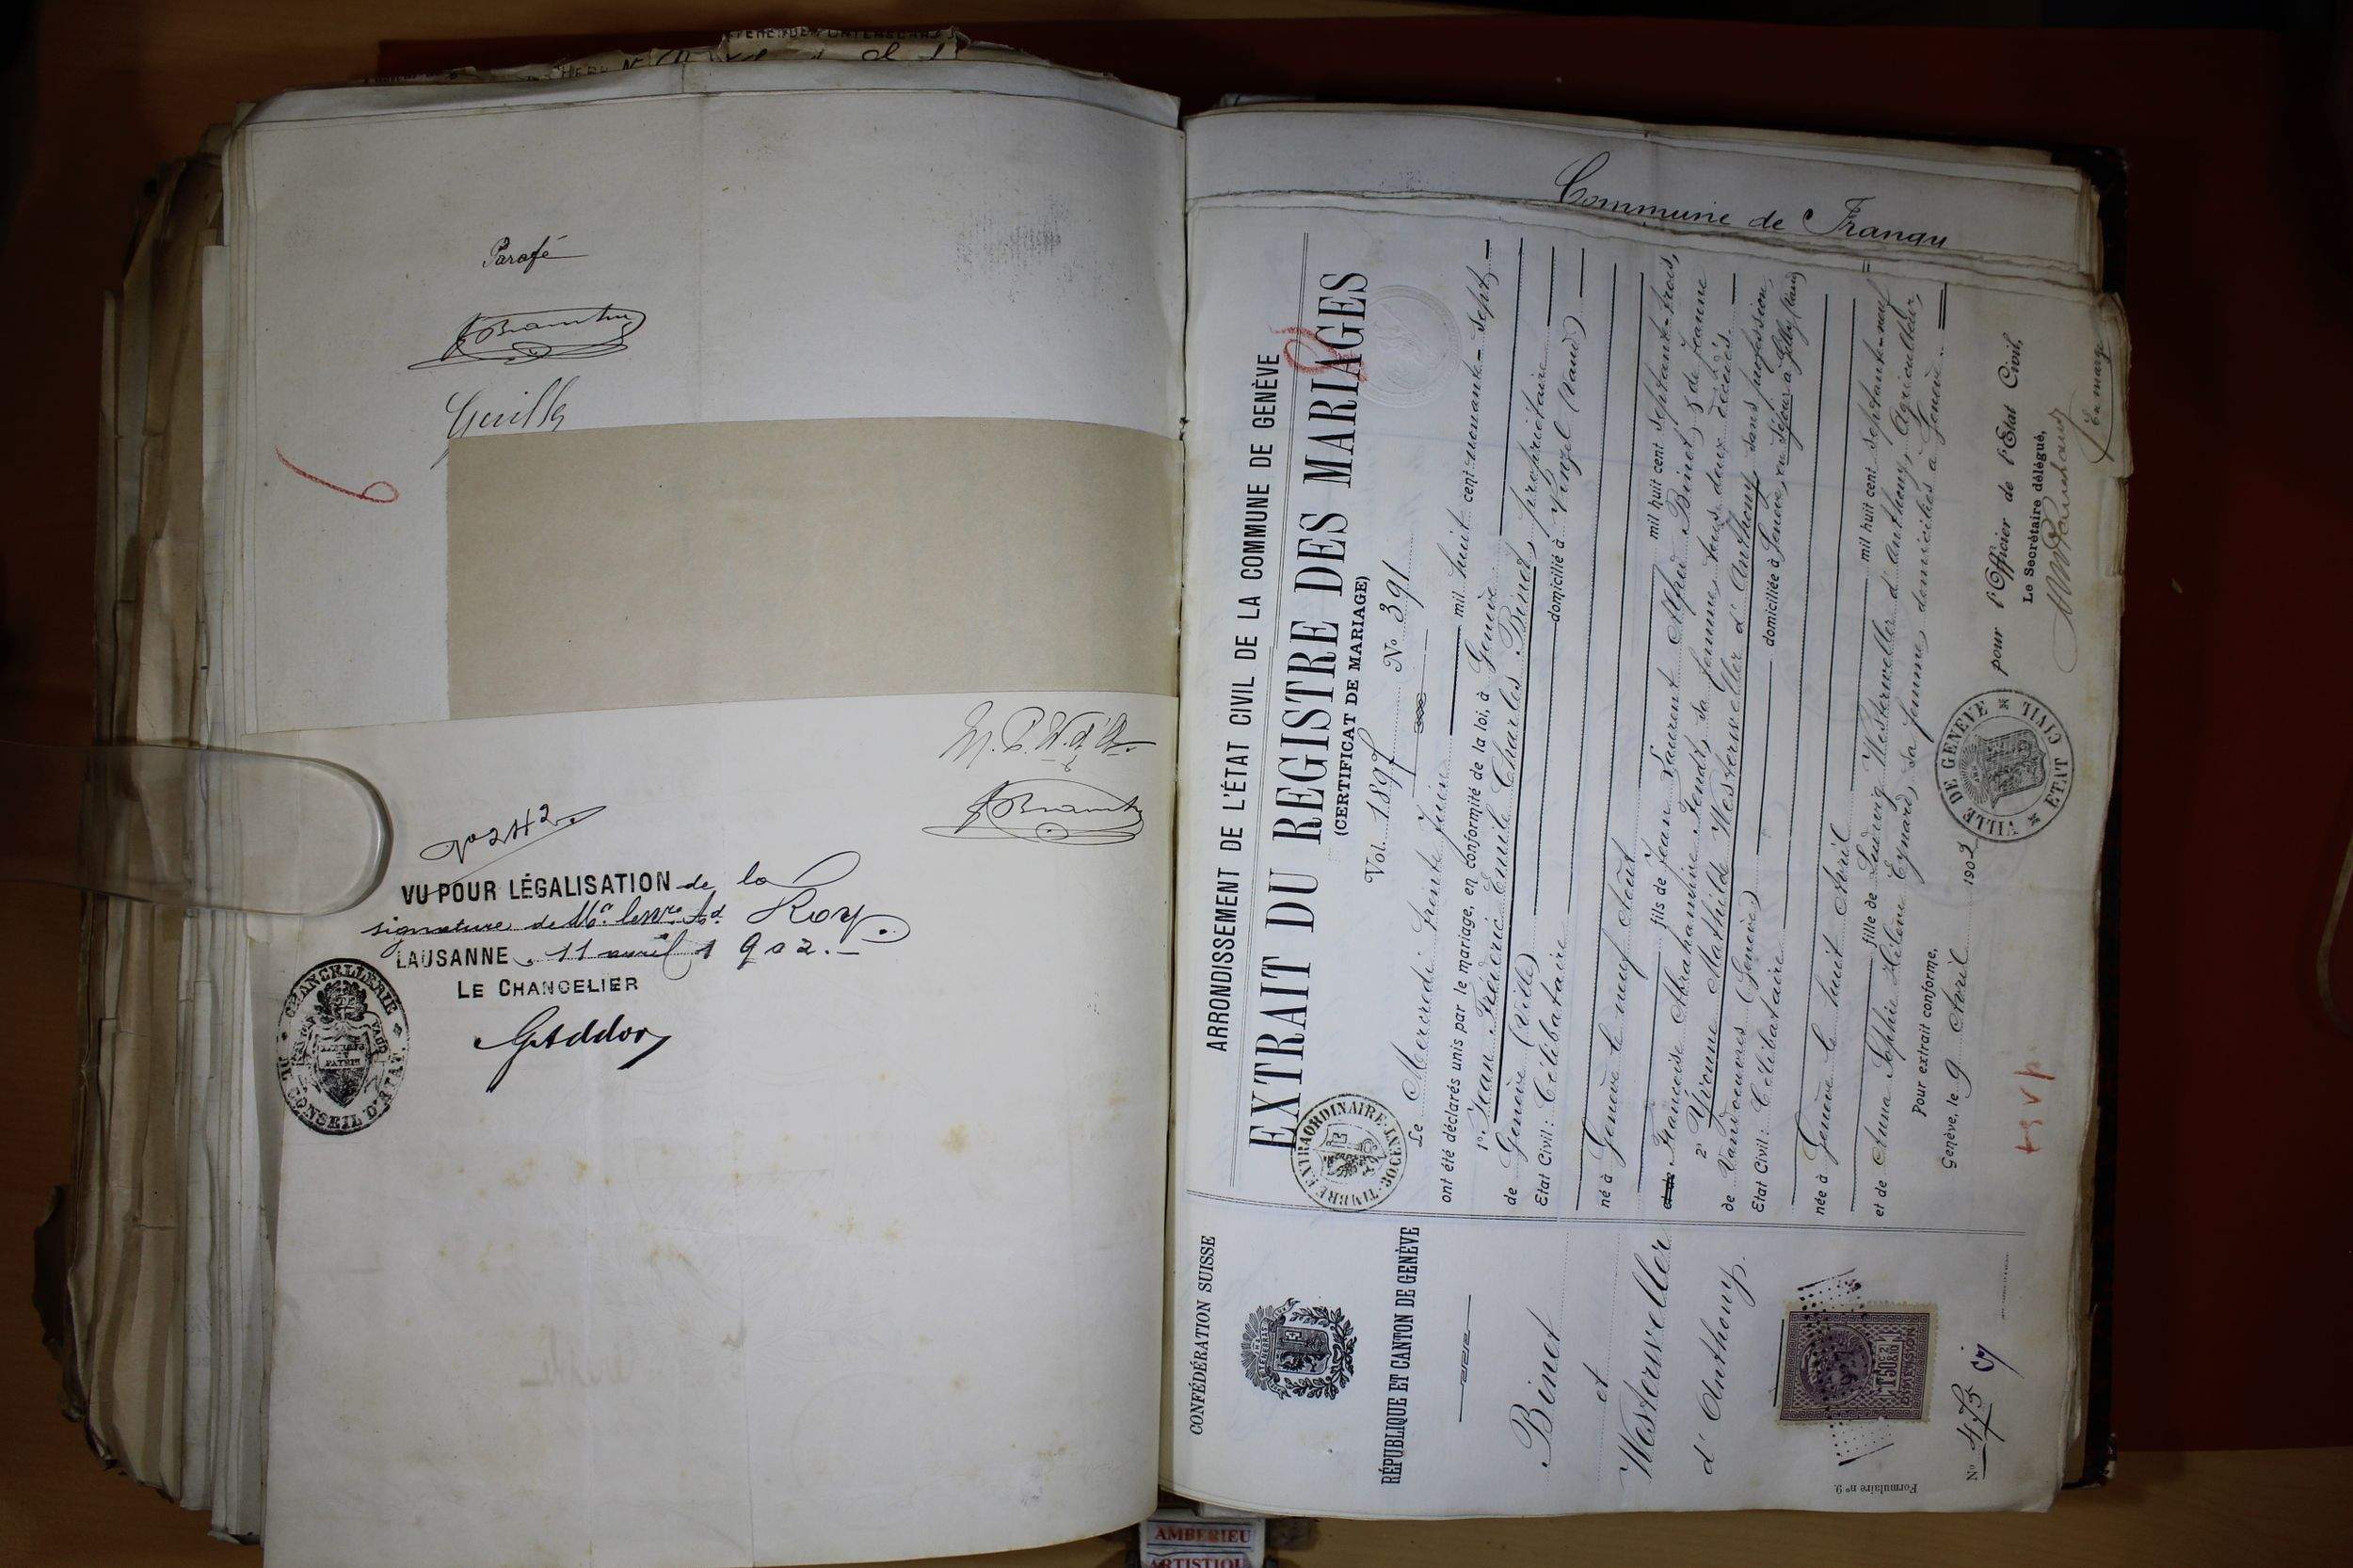 Parafé
6
Nº 242.
VU POUR LÉGALISATION de la
signature de Mr. Ad. Roy.
LAUSANNE, 11 avril 1902.-
LE CHANCELIER
G. Addor
CHANCELLERIE DU CONSEIL D'ÉTAT
LIBERTÉ ET PATRIE
Commune de
CONFÉDÉRATION SUISSE
RÉPUBLIQUE ET CANTON DE GENÈVE
Binet
et
Westerweller
d'Anthony.
CT. 50
Nº 475
Formulaire nº 9
ARRONDISSEMENT DE L'ÉTAT CIVIL DE LA COMMUNE DE GENÈVE
EXTRAIT DU REGISTRE DES MARIAGES
(CERTIFICAT DE MARIAGE)
TIMBRE EXTRAORDINAIRE
Vol. 1897 Nº 391
Le Mercredi trente Juin mil huit cent nonante-sept
ont été déclarés unis par le mariage, en conformité de la loi, à Genève
1º Jean Frédéric Emile Charles Binet, propriétaire
de Genève (Ville) domicilié à Vinzel (Vaud)
Etat Civil: Célibataire
né à Genève le neuf Août mil huit cent septante-trois,
fils de Jean Laurent Alfred Binet, & de Jeanne
et de Françoise Abrahamine Jendt, sa femme, tous deux décédés.
2º Yvonne Mathilde Westerweller d'Anthony, sans profession,
de Vandoeuvres (Genève) domiciliée à Genève, en séjour à Gilly (Vaud)
Etat Civil: Célibataire
née à Genève le huit Avril mil huit cent septante-neuf
fille de Ludwig Westerweller d'Anthony, Agriculteur,
et de Anna Sophie Hélène Eynard, sa femme, domiciliés à Genève.
Pour extrait conforme,
Genève, le 9 Avril 1902
VILLE DE GENÈVE
ETAT CIVIL
pour l'Officier de l'Etat Civil,
Le Secrétaire délégué,
En marge
t s v p
AMBERIEU
ARTISTIQU